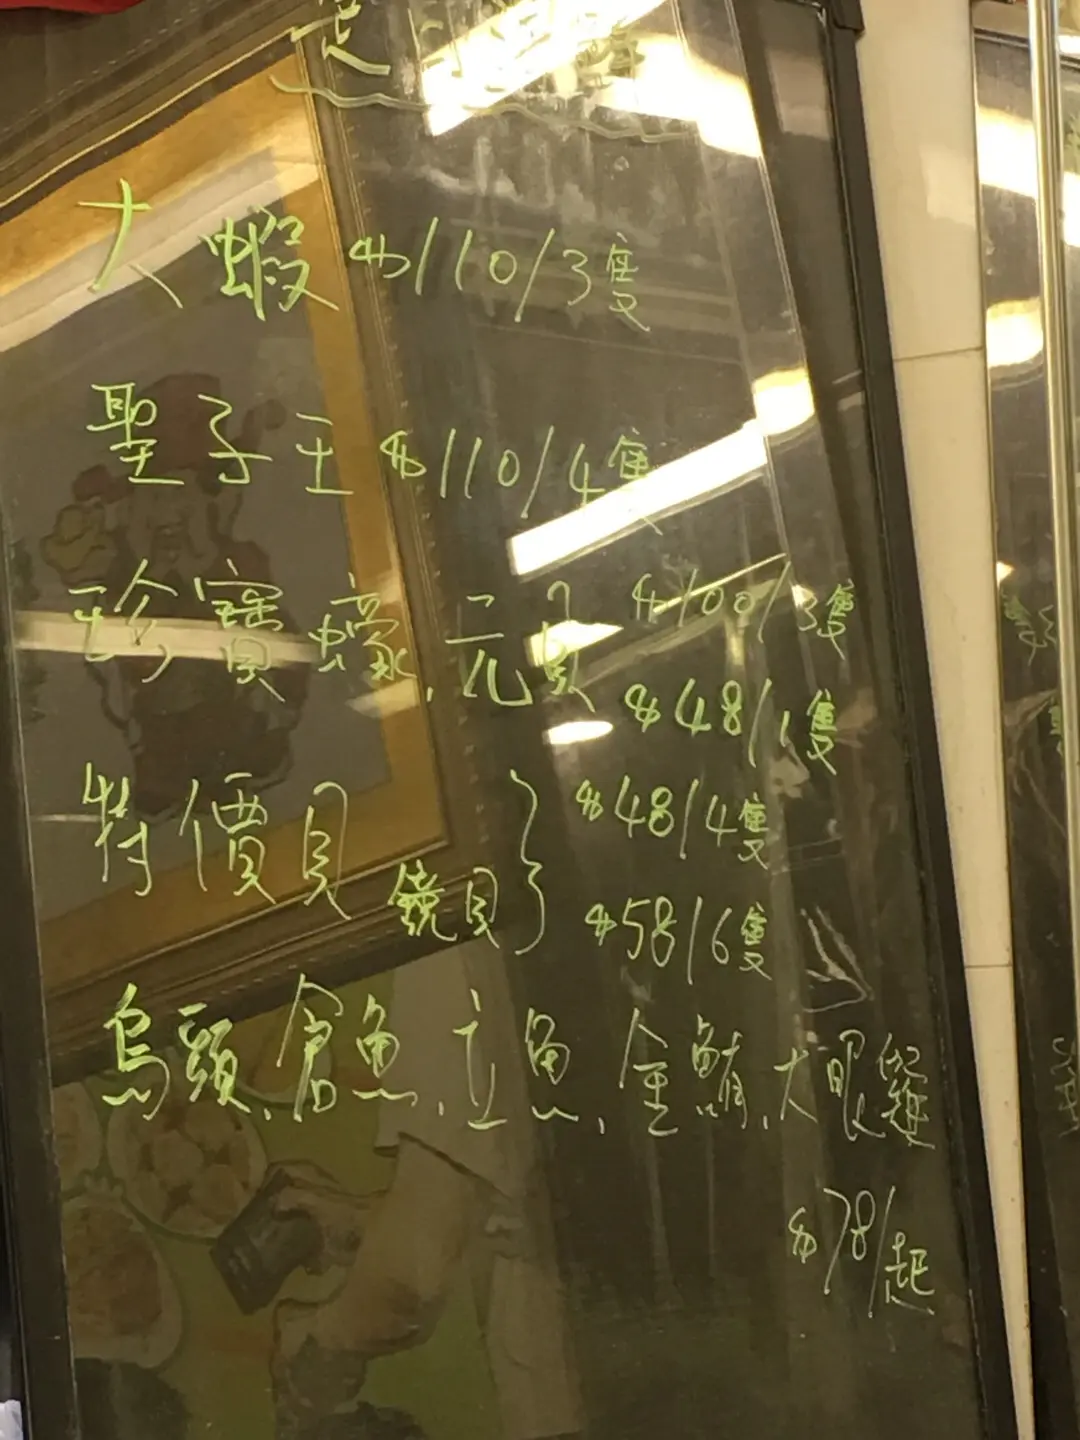 大蝦 $110/3隻
聖子王 $110/4隻
珍寶蠔, 元貝 $100/3隻
$48/1隻
特價貝 $48/4隻
鏡貝 $58/6隻
烏頭、倉魚、立魚、金鯧、大眼雞
$78/起